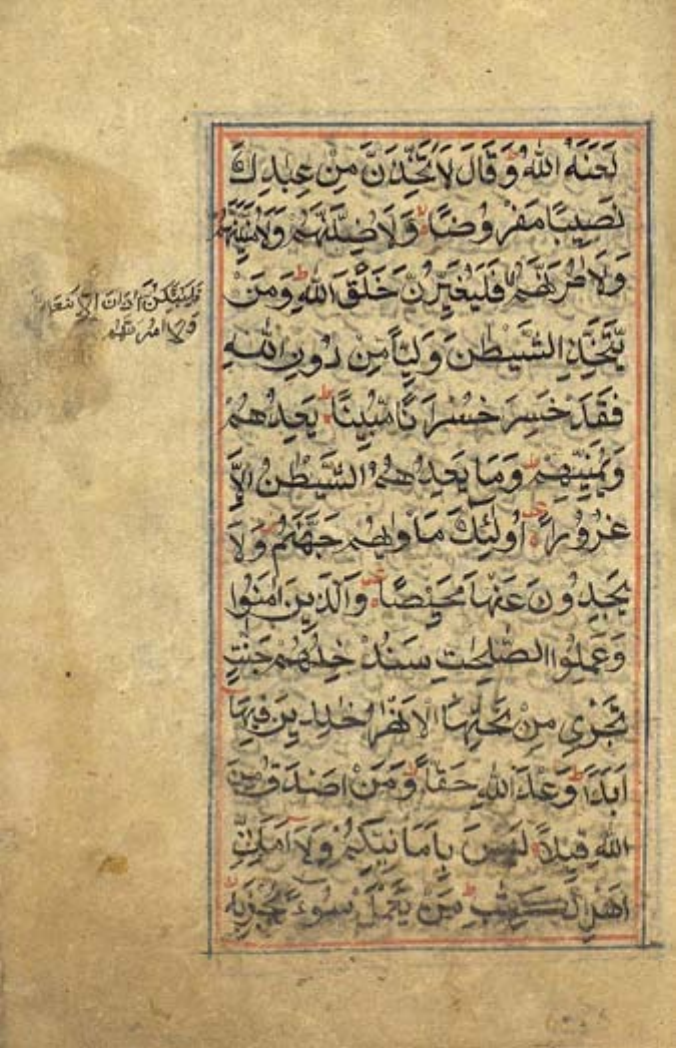 لَعَنَهُ اللهُ وَقَالَ لَاَتَّخِذَنَّ مِنْ عِبَادِكَ
نَصِيبًا مَفْرُوضًا وَلَاُضِلَّنَّهُمْ وَلَاُمَنِّيَنَّهُمْ
وَلَاٰمُرَنَّهُمْ فَلَيُغَيِّرُنَّ خَلْقَ اللهِ وَمَنْ
يَتَّخِذِ الشَّيْطٰنَ وَلِيًّا مِنْ دُونِ اللهِ
فَقَدْ خَسِرَ خُسْرَانًا مُبِينًا يَعِدُهُمْ
وَيُمَنِّيهِمْ وَمَا يَعِدُهُمُ الشَّيْطٰنُ اِلَّا
غُرُورًا اُولٰئِكَ مَاْوٰىهُمْ جَهَنَّمُ وَلَا
يَجِدُونَ عَنْهَا مَحِيصًا وَالَّذِينَ اٰمَنُوا
وَعَمِلُوا الصّٰلِحٰتِ سَنُدْخِلُهُمْ جَنّٰتٍ
تَجْرِى مِنْ تَحْتِهَا الْاَنْهٰرُ خٰلِدِينَ فِيهَا
اَبَدًا وَعْدَ اللهِ حَقًّا وَمَنْ اَصْدَقُ مِنَ
اللهِ قِيلًا لَيْسَ بِاَمَانِيِّكُمْ وَلَا اَمَانِىِّ
اَهْلِ الْكِتٰبِ مَنْ يَعْمَلْ سُوءً يُجْزَ بِهٖ
فَلَيُبَتِّكُنَّ اٰذَانَ الْاَنْعَامِ
وَلَاٰمُرَنَّهُمْ